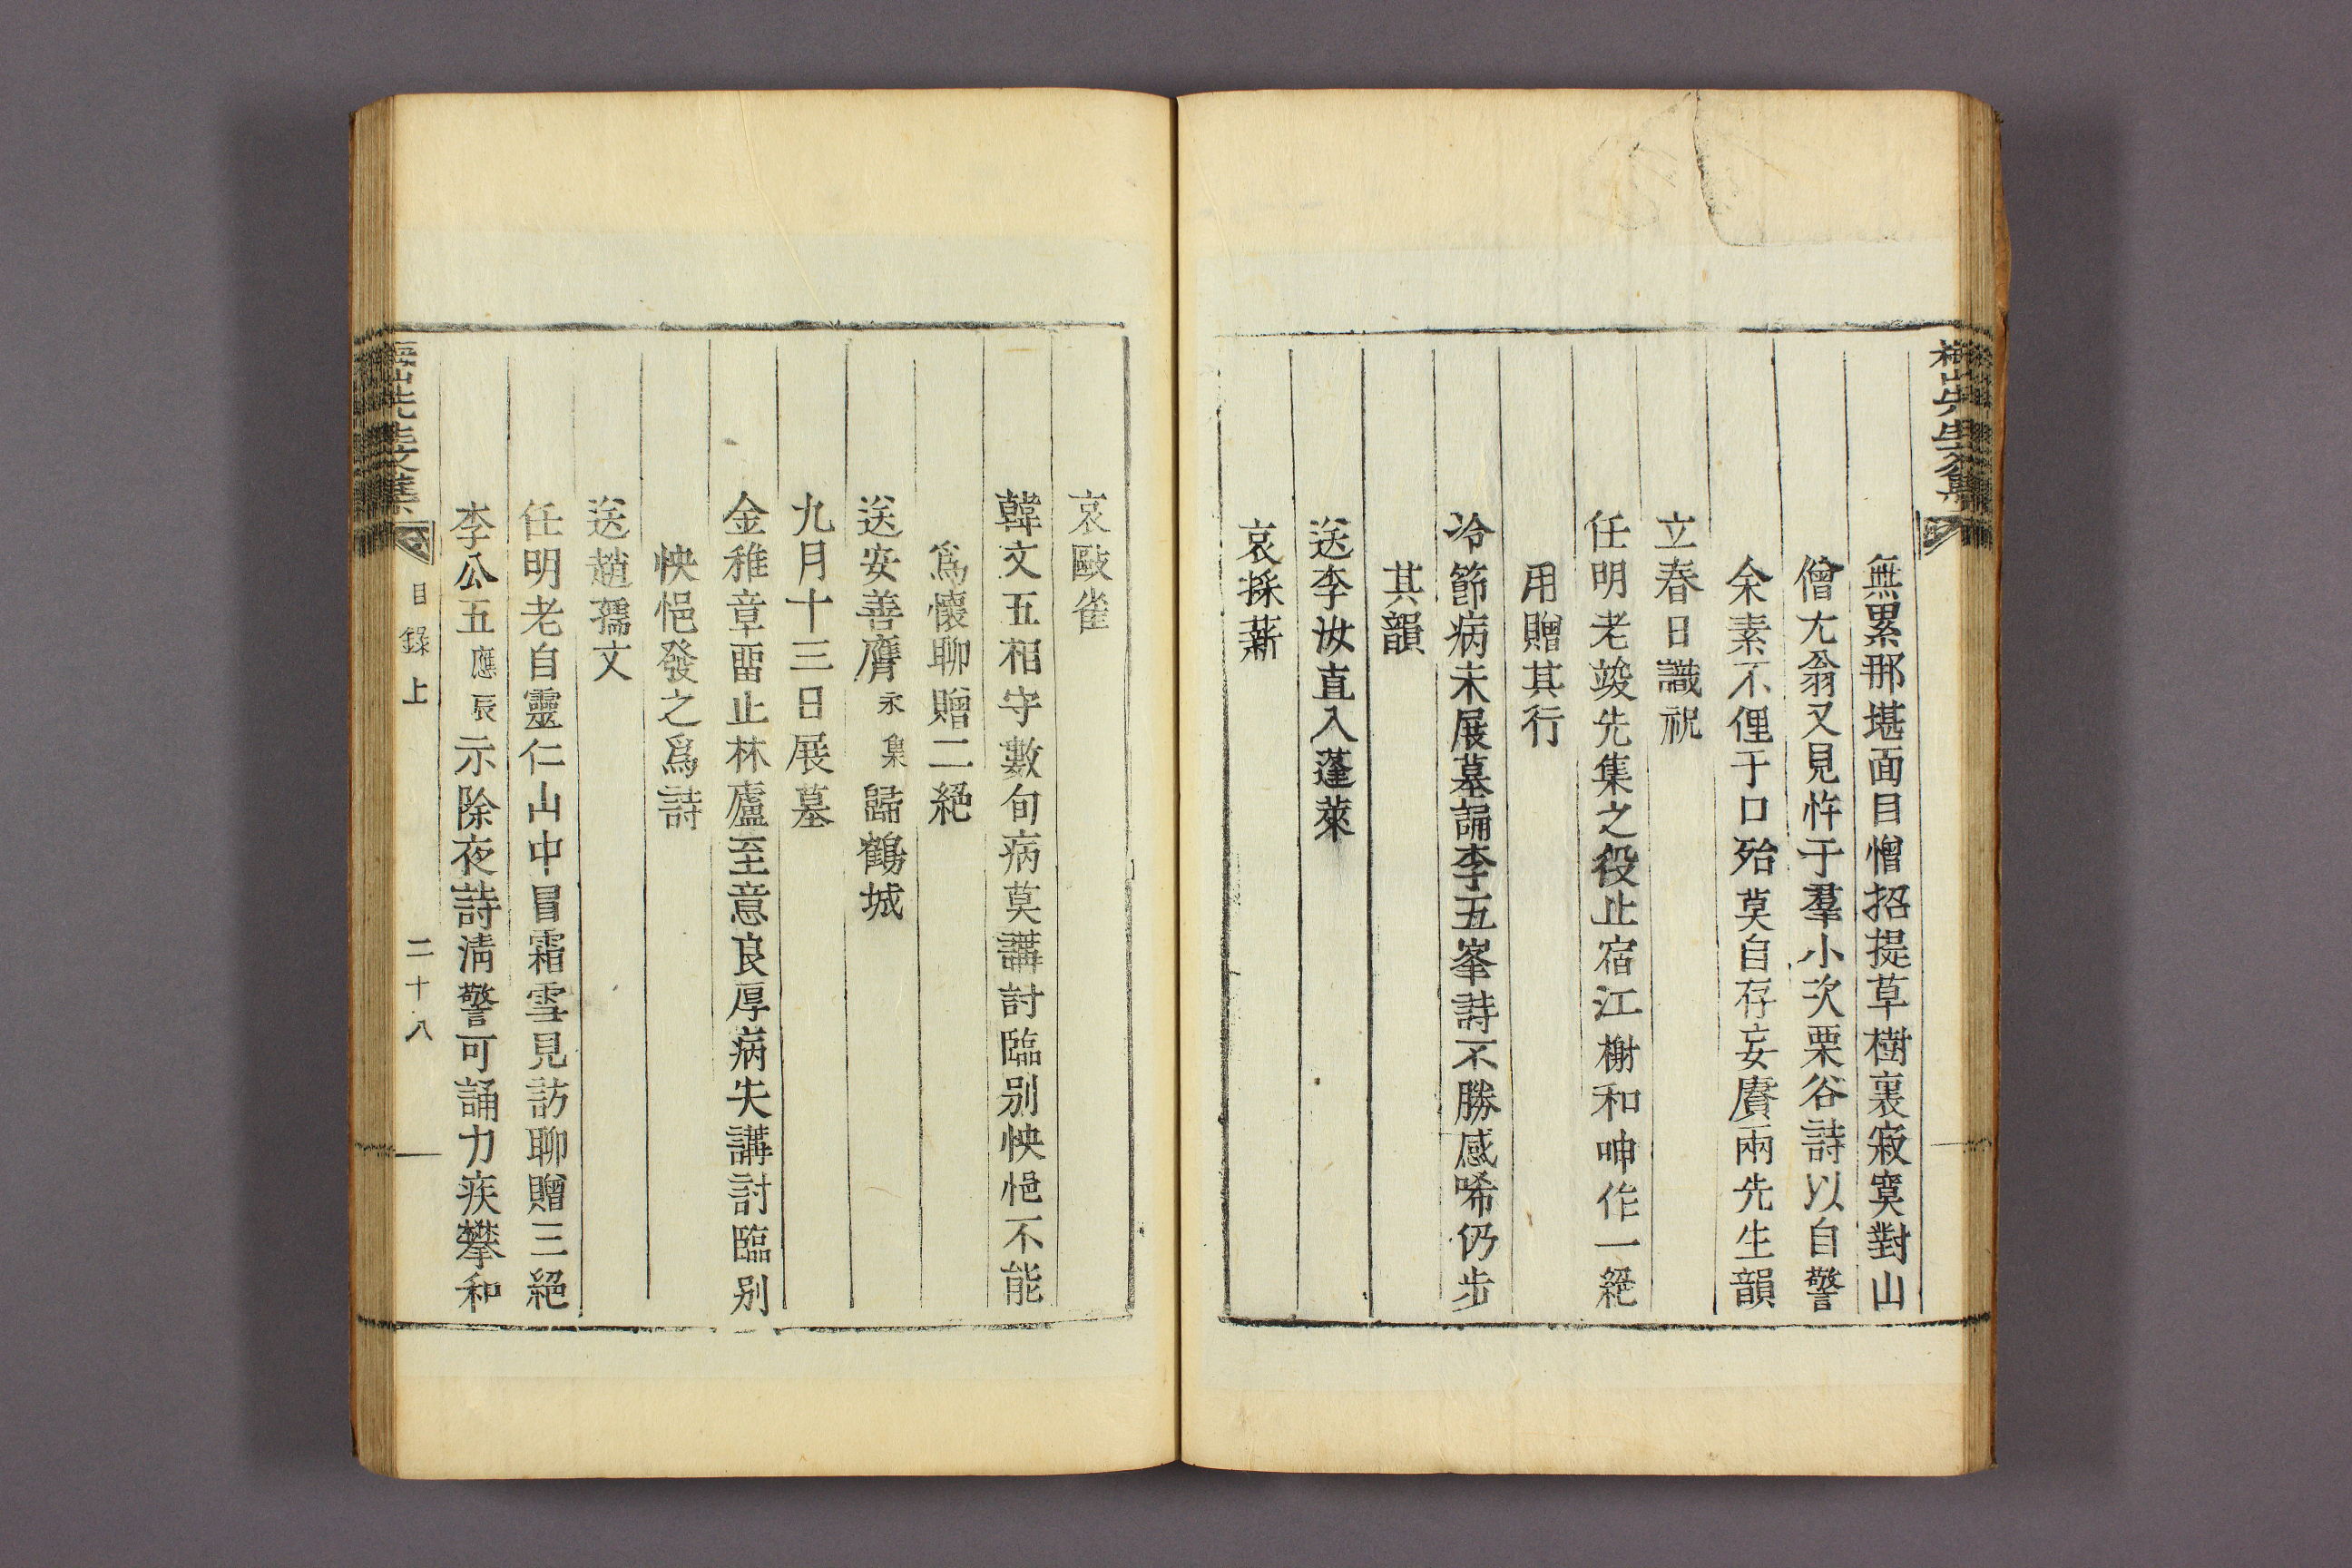 無累那堪面目憎招提草樹裏寂寞對山
僧尤翁又見忤于羣小次栗谷詩以自警
余素不俚于口殆莫自存妄賡兩先生韻
立春日識祝
任明老竣先集之役止宿江榭和呻作一絕
用贈其行
冷節病未展墓誦李五峯詩不勝感唏仍步
其韻
送李汝直入蓬萊
哀採薪
哀毆雀
韓文五相守數旬病莫講討臨別怏悒不能
爲懷聊贈二絕
送安善膺永集歸鶴城
九月十三日展墓
金稚章畱止林廬至意良厚病失講討臨別
怏悒發之爲詩
送趙孺文
任明老自靈仁山中冒霜雪見訪聊贈三絕
李公五應辰示除夜詩淸警可誦力疾攀和
梅山先生文集
目錄上
二十八